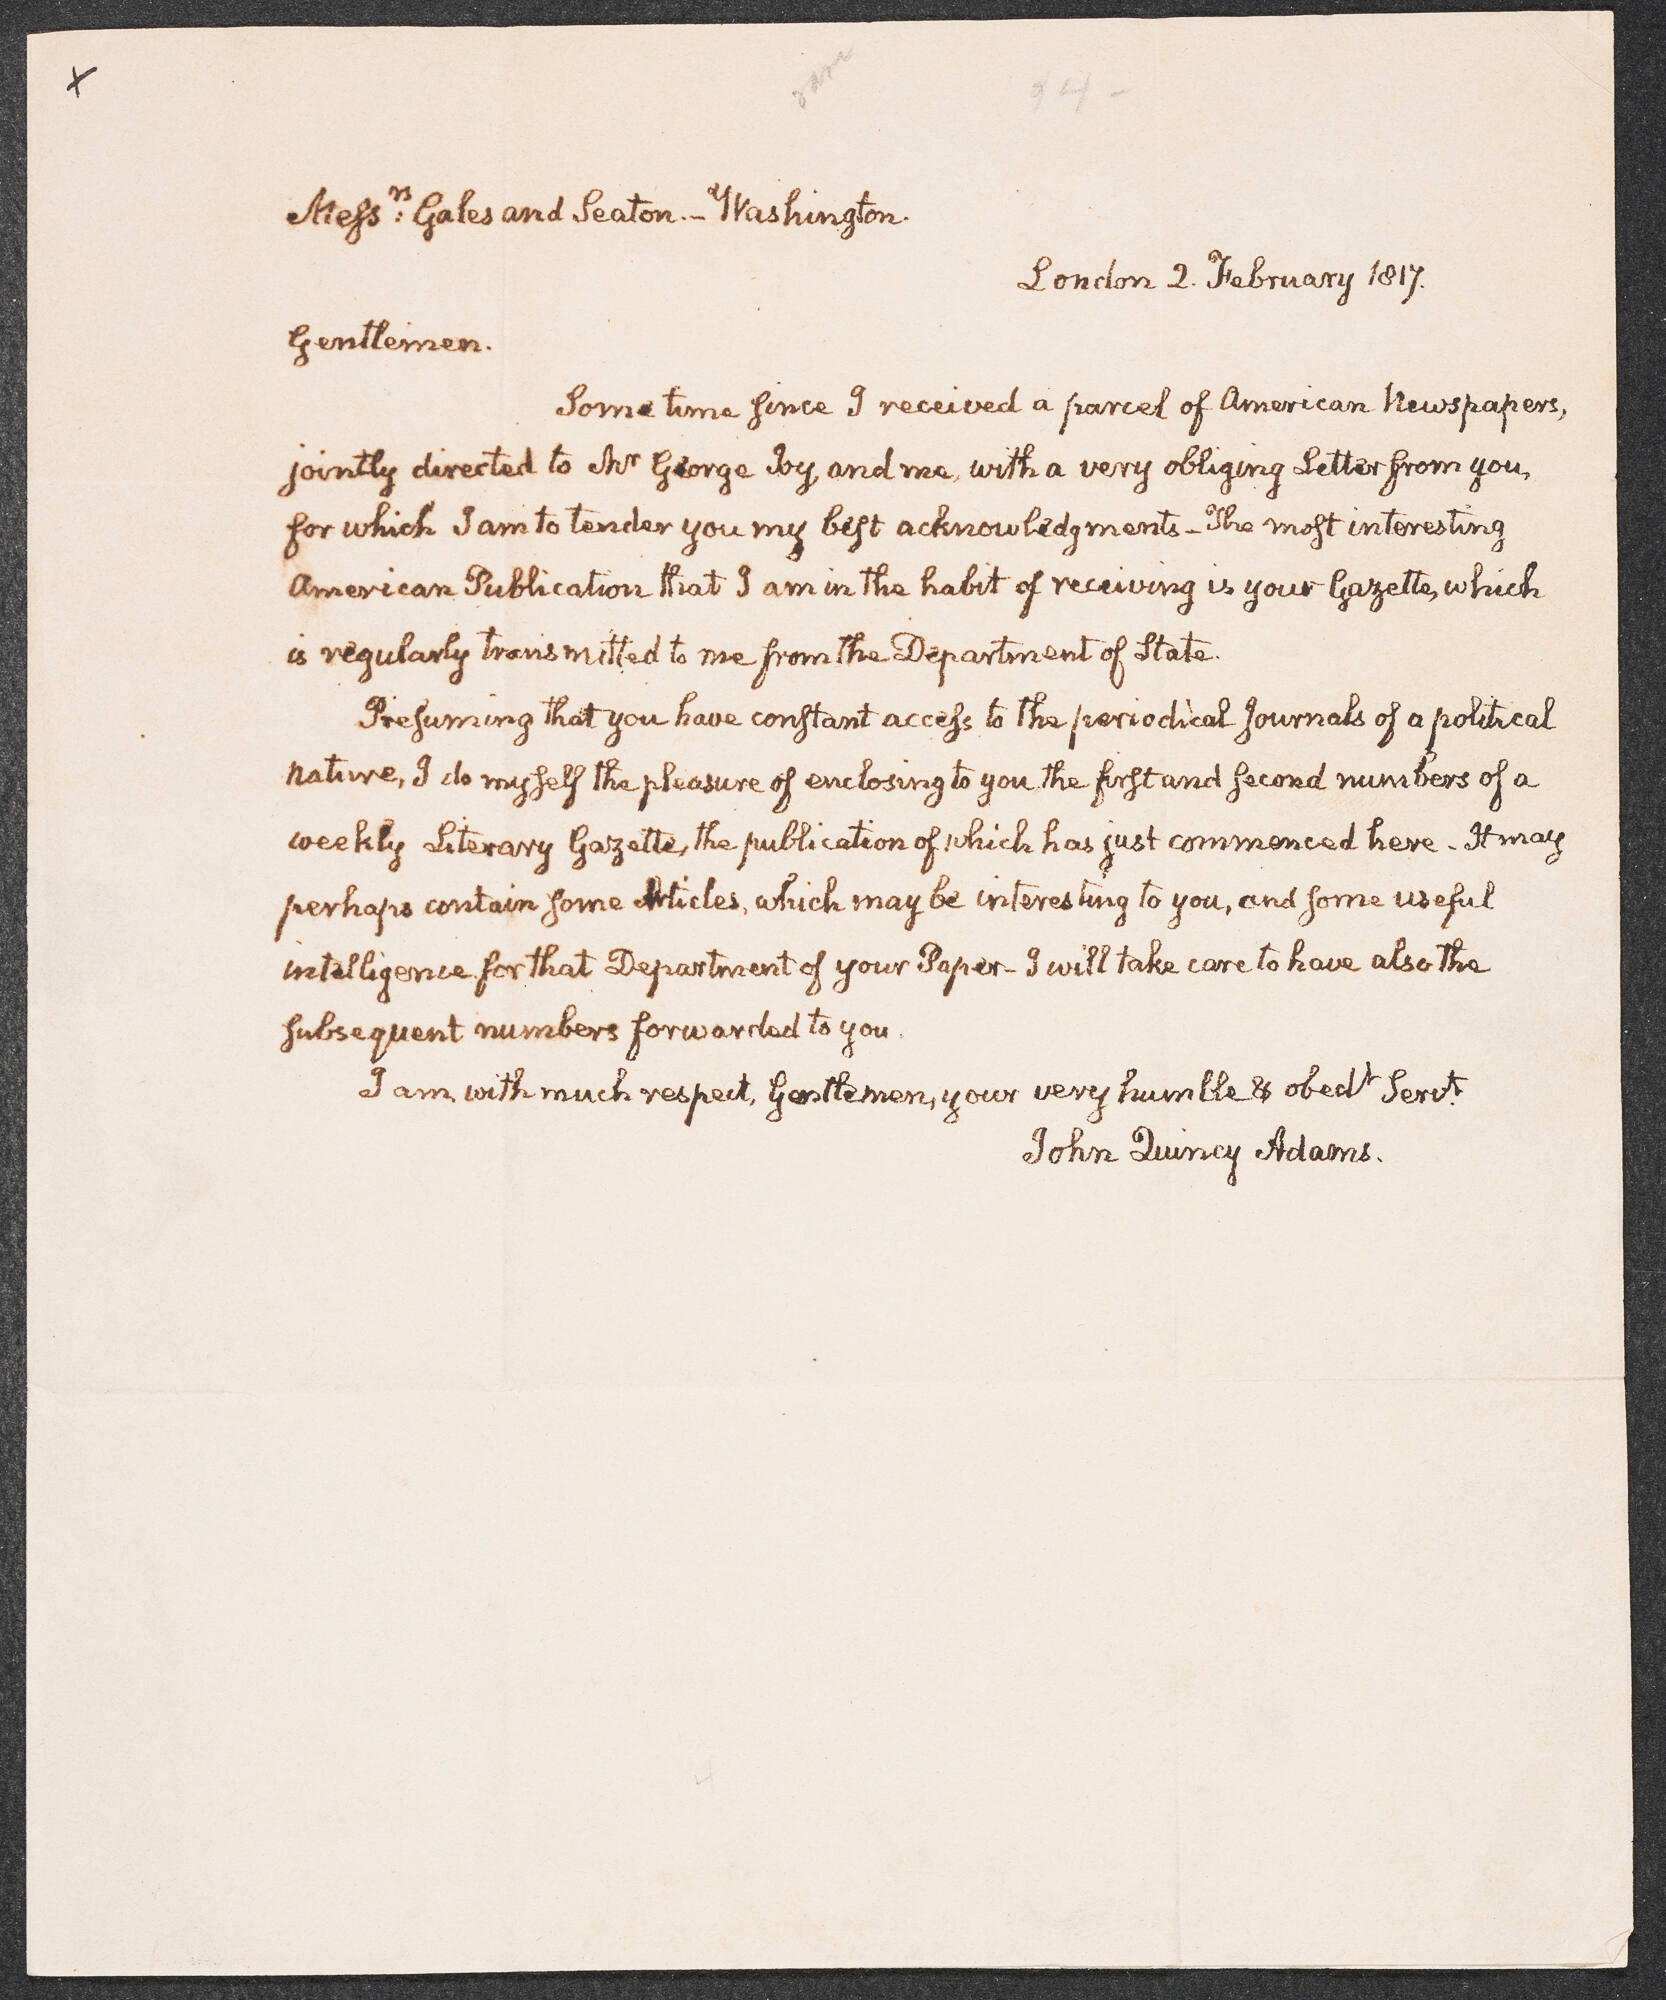 x
rare
94-
Mess.rs Gales and Seaton.- Washington.
London 2. February 1817.
Gentlemen.
Some time since I received a parcel of American Newspapers,
jointly directed to Mr George Joy, and me, with a very obliging Letter from you,
for which I am to tender you my best acknowledgments - The most interesting
American Publication that I am in the habit of receiving is your Gazette, which
is regularly transmitted to me from the Department of State.
Presuming that you have constant access to the periodical Journals of a political
nature, I do myself the pleasure of enclosing to you the first and second numbers of a
weekly Literary Gazette, the publication of which has just commenced here - It may
perhaps contain some Articles, which may be interesting to you, and some useful
intelligence for that Department of your Paper - I will take care to have also the
subsequent numbers forwarded to you.
I am, with much respect, Gentlemen, your very humble & obedt Servt.
John Quincy Adams.
4